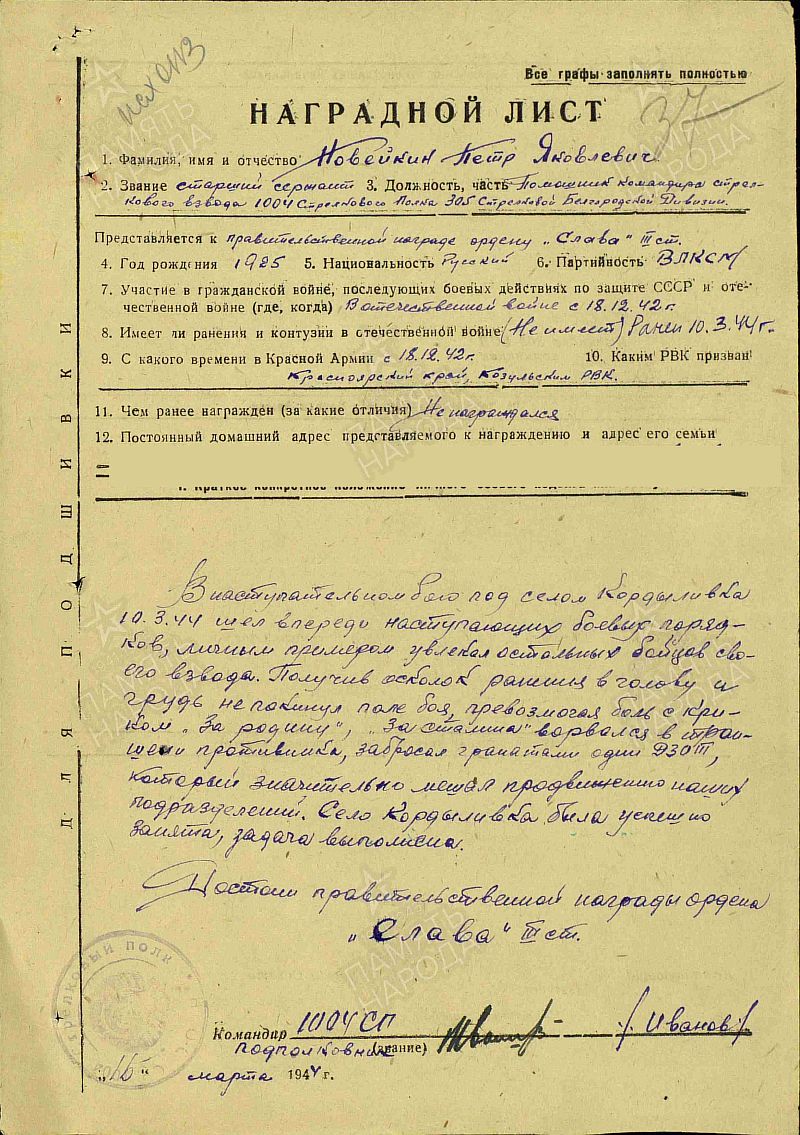 исх 0113
Все графы заполнять полностью
НАГРАДНОЙ ЛИСТ
37
1. Фамилия, имя и отчество Новейкин Петр Яковлевич
2. Звание старший сержант 3. Должность, часть Помошник командира стрел-
кового взвода 1004 Стрелкового Полка 305 Стрелковой Белгородской Дивизии.
Представляется к правительственной награде ордену „Слава" III ст.
4. Год рождения 1925 5. Национальность Русский 6. Партийность ВЛКСМ
7. Участие в гражданской войне, последующих боевых действиях по защите СССР и оте-
чественной войне (где, когда) В отечественной войне с 18.12.42 г.
8. Имеет ли ранения и контузии в отечественной войне (Не имеет) Ранен 10.3.44 г.
9. С какого времени в Красной Армии с 18.12.42 г. 10. Каким РВК призван
Красноярский край, Козульским РВК.
11. Чем ранее награжден (за какие отличия) Не награждался
12. Постоянный домашний адрес представляемого к награждению и адрес его семьи
ДЛЯ ПОДШИВКИ
В наступательном бою под селом Кордыливка
10.3.44 шел впереди наступающих боевых поряд-
ков, личным примером увлекал остальных бойцов сво-
его взвода. Получив осколок ранения в голову и
грудь не покинул поле боя, превозмогая боль с кри-
ком „За родину", „За сталина" ворвался в тран-
шеи противника, забросал гранатами один ДЗОТ,
который значительно мешал продвижению наших
подразделений. Село Кордыливка была успешно
занята, задача выполнена.
Достоин правительственной награды ордена
„Слава" III ст.
Командир 1004 СП
подполковник (звание) /Иванов/
„16" марта 1944 г.
ПАМЯТЬ НАРОДА